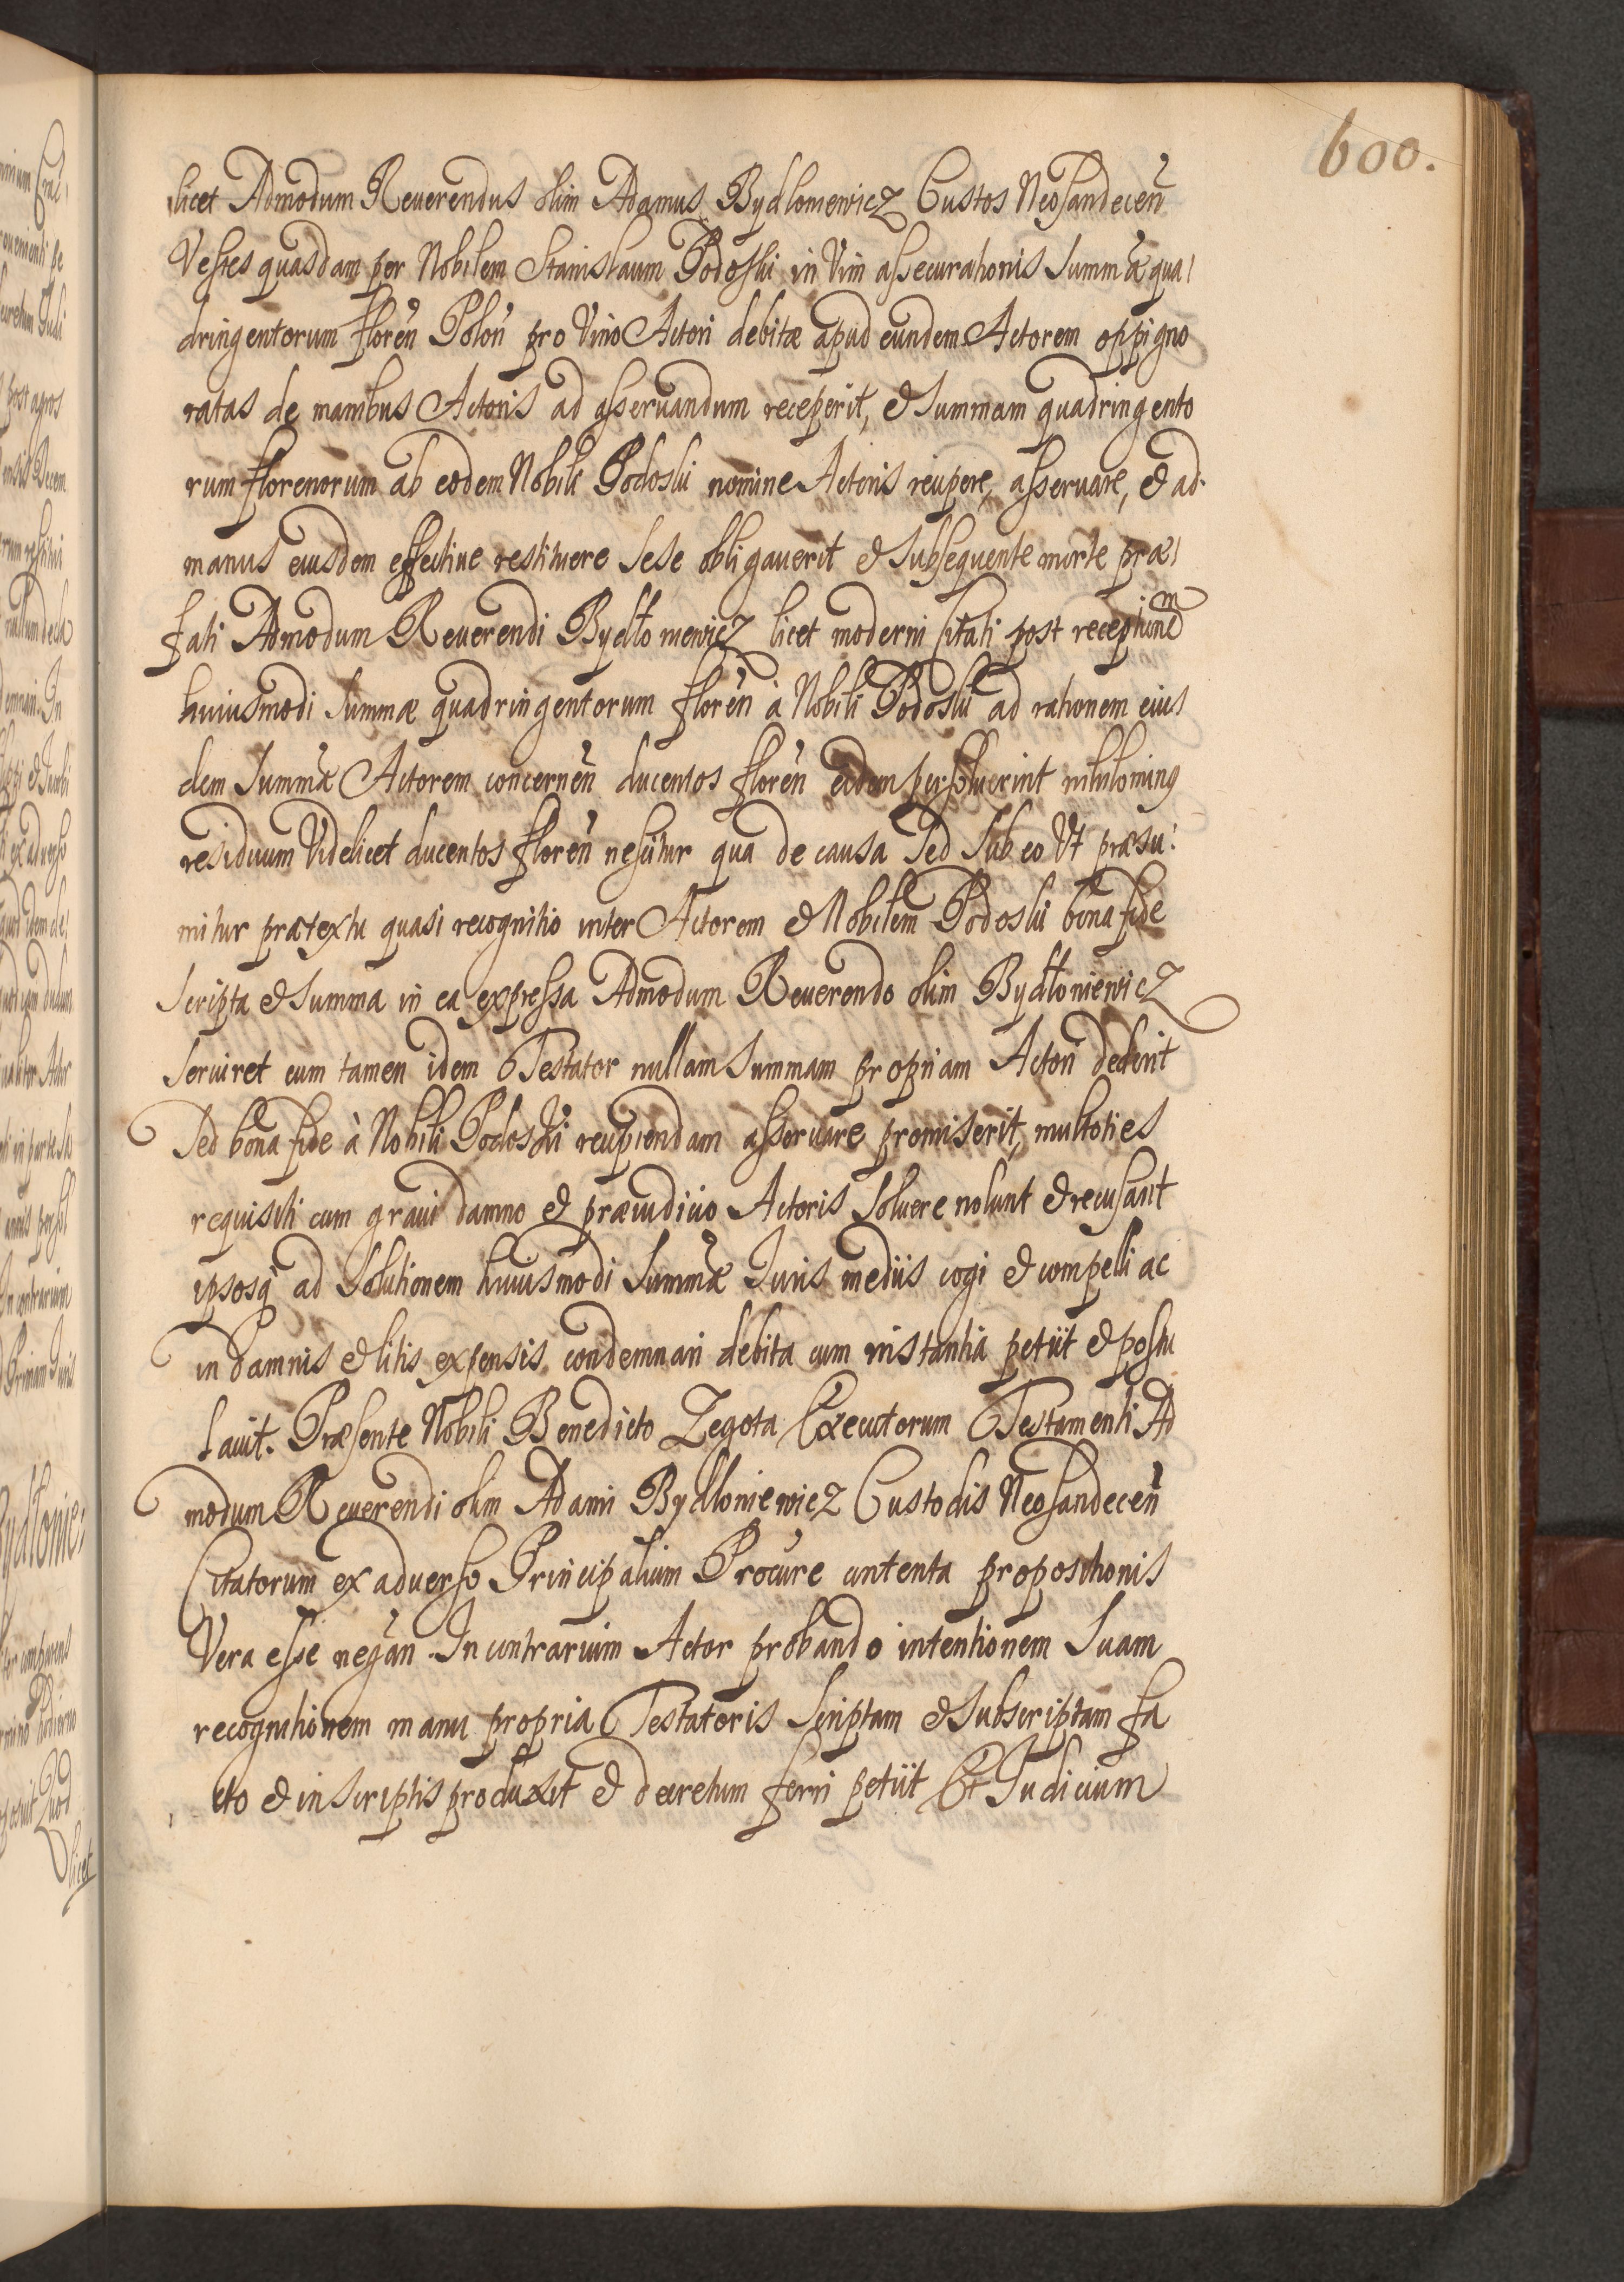 600.
licet Admodum Reuerendus olim Adamus Bydloniewicz Custos Neosandeceñ
Vestes quasdam per Nobilem Stanislaum Podoski in Vim assecurationis Summæ qua
dringentorum floreñ Poloñ pro Vino Actori debitæ apud eundem Actorem oppigno
ratas de manibus Actoris ad asseruandum receperit, et Summam quadringento
rum florenorum ab eodem Nobili Podoski nomine Actoris recipere, asseruare, et ad
manus eiusdem effectiue restituere Sese obligauerit et Subsequente morte præ
fati Admodum Reuerendi Bydłoniewicz licet moderni Citati post receptionem
huiusmodi Summæ quadringentorum floreñ à Nobili Podoski ad rationem eius
dem Summæ Actorem concerneñ ducentos floreñ eidem persoluerint nihilominus
residuum Videlicet ducentos floreñ nescitur qua de causa Sed Sub eo Vt præsu
mitur prætextu quasi recognitio inter Actorem et Nobilem Podoski bona fide
Scripta et Summa in ea expressa Admodum Reuerendo olim Bydłoniewicz
Seruiret cum tamen idem Testator nullam Summam propriam Actori dederit
Sed bona fide à Nobili Podoski recipiendam asseruare promiserit, multoties
requisiti cum graui damno et præiudicio Actoris Soluere nolunt et recusant
ipsosq ad Solutionem huiusmodi Summæ Juris mediis cogi et compelli ac
in damnis et litis expensis condemnari debita cum instantia petiit et postu
lauit. Præsente Nobili Benedicto Zegota Executorum Testamenti Ad
modum Reuerendi olim Adami Bydloniewicz Custodis Neosandeceñ
Citatorum ex aduerso Principalium Procure contenta propositionis
Vera esse negañ. In contrarium Actor probando intentionem Suam
recognitionem manu propria Testatoris Scriptam et Subscriptam fa
cto et in scriptis produxit et decretum ferri petiit Et Judicium